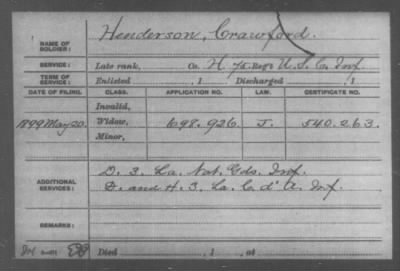 Henderson, Crawford.
NAME OF SOLDIER:
SERVICE: Late rank, Co. H, 75 Reg't U.S.C. Inf
TERM OF SERVICE: Enlisted , 1 Discharged , 1
DATE OF FILING. CLASS. APPLICATION NO. LAW. CERTIFICATE NO.
Invalid,
1899 May 20. Widow, 698.926 J. 540.263.
Minor,
ADDITIONAL SERVICES: D. 3. La. Nat. Gds. Inf.
D. and H. 3. La. C. d' A. Inf.
REMARKS:
Died , 1 , at